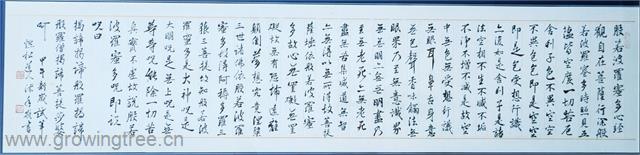 般若波羅蜜多心經
觀自在菩薩行深般
若波羅蜜多時照見五
蘊皆空度一切苦厄
舍利子色不異空空
不異色色即是空空
即是色受想行識
亦復如是舍利子是諸
法空相不生不滅不垢
不淨不增不減是故空
中無色無受想行識
無眼耳鼻舌身意
無色聲香味觸法無
眼界乃至無意識界
無無明亦無無明盡乃
至無老死亦無老死
盡無苦集滅道無智
亦無得以無所得故菩提
薩埵依般若波羅蜜
多故心無罣礙無罣
礙故無有恐怖遠離
顛倒夢想究竟涅槃
三世諸佛依般若波羅
蜜多故得阿耨多羅三
藐三菩提故知般若波
羅蜜多是大神呪是
大明呪是無上呪是無
等等呪能除一切苦
真實不虛故說般若
波羅蜜多呪即說
呪曰
揭諦揭諦般羅揭諦
般羅僧揭諦菩提莎婆
訶
甲午新歲試筆
www.growingtree.cn